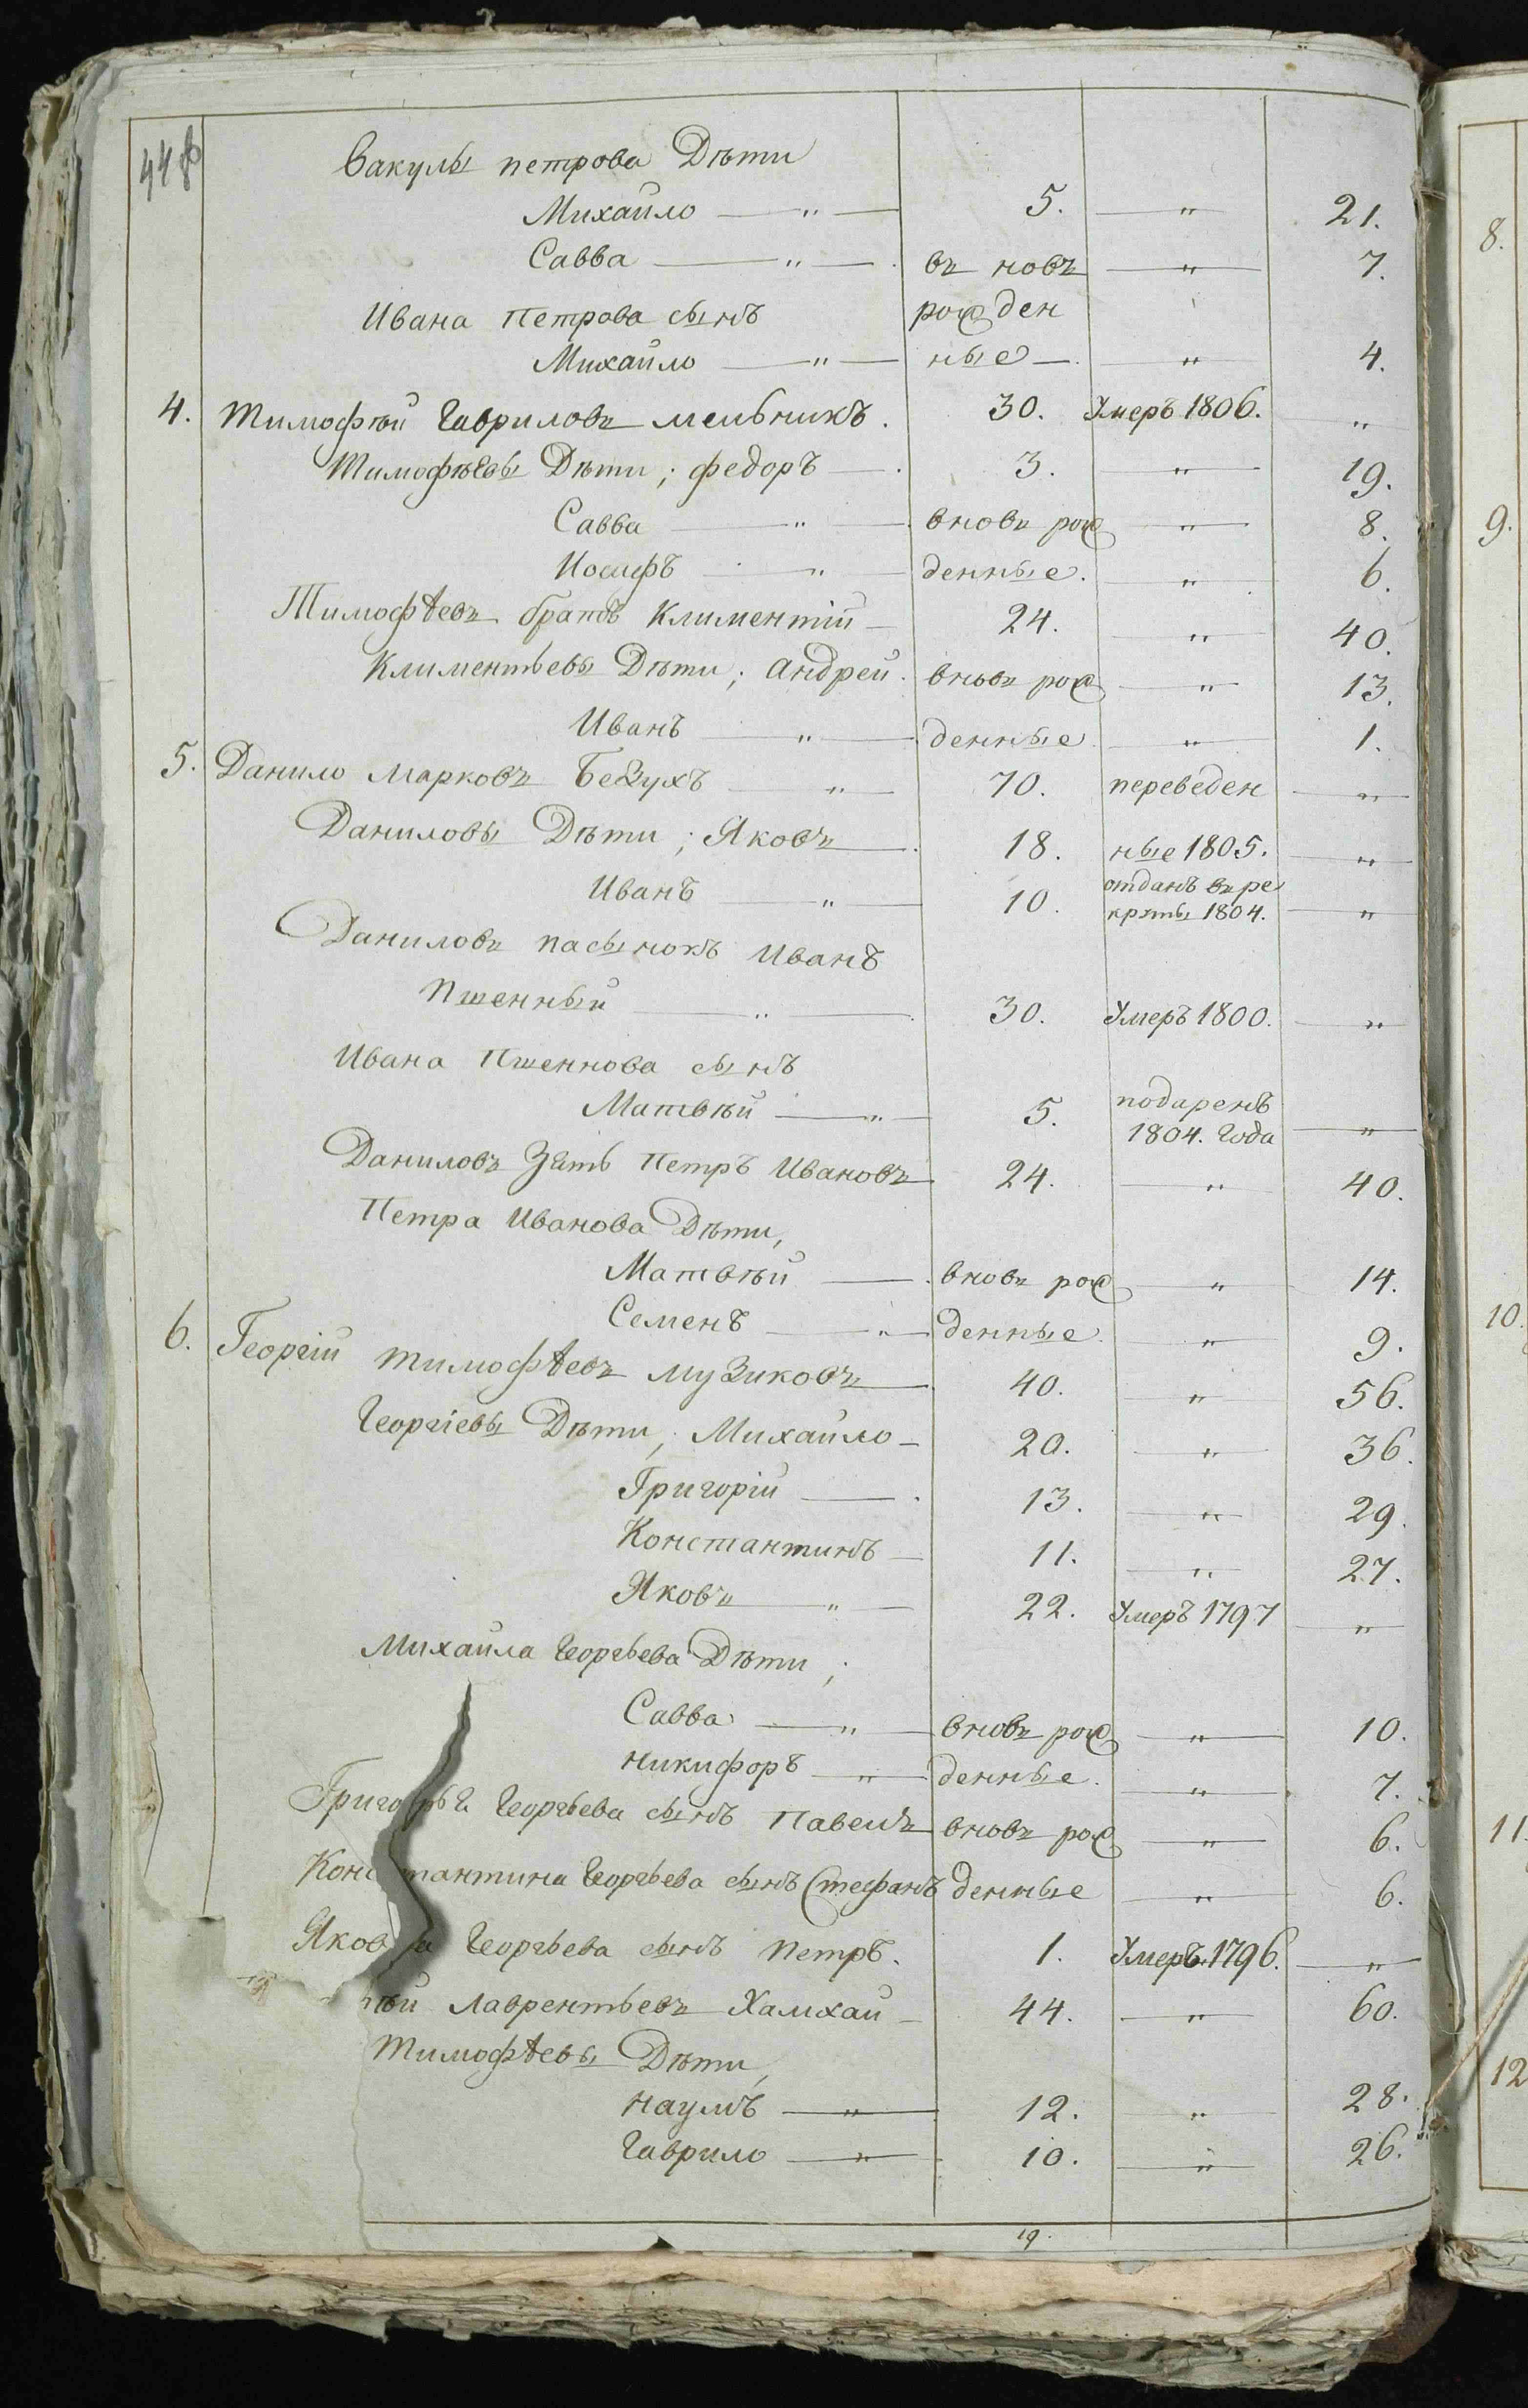 448
Вакулы петрова Дѣти
Михаило — „ — 5. — „ — 21.
Савва — „ — въ новъ — „ — 7.
Ивана петрова сынъ рожден
Михаило — „ — ные — „ — 4.
4. Тимофѣй Гавриловъ мельникъ. 30. Умеръ 1806. „
Тимофѣевы Дѣти; федоръ — 3. — „ — 19.
Савва — „ — вновъ рож — „ — 8.
Иосифъ — „ — денные. — „ — 6.
Тимофѣевъ братъ Климентій — 24. — „ — 40.
Климентьевы Дѣти; андрей. вновъ рож — „ — 13.
Иванъ — „ — денные — „ — 1.
5. Данило марковъ Безухъ — „ — 70. переведен — „ —
Даниловы Дѣти; Яковъ — 18. ные 1805. — „ —
Иванъ — „ — 10. отданъ въ ре
круты 1804. — „
Даниловъ пасынокъ иванъ
пшенный — „ — 30. Умеръ 1800. — „ —
Ивана пшеннова сынъ
Матвѣй — „ — 5. подаренъ
1804. Года — „ —
Даниловъ Зять петръ ивановъ 24. — „ — 40.
Петра иванова Дѣти,
Матвѣй — вновъ рож — „ — 14.
Семенъ — „ — денные — „ — 9.
6. Георгій тимофѣевъ музиковъ — 40. — „ — 56.
Георгіевы Дѣти, Михаило — 20. — „ — 36.
Григорій — 13. — „ — 29.
Константинъ — 11. — „ — 27.
Яковъ — „ — 22. Умеръ 1797 — „ —
Михаила Георгьева Дѣти;
Савва — „ — вновъ рож — „ — 10.
никифоръ — „ — денные. — „ — 7.
Григорья Георгьева сынъ павелъ вновъ рож — „ — 6.
Константина Георгьева сынъ Стефанъ денные — „ — 6.
Якова Георгьева сынъ петръ. 1. Умеръ 1796. — „ —
ѣй лаврентьевъ Хамхаи — 44. — „ — 60.
Тимофѣевы Дѣти,
наумъ — „ — 12. — „ — 28.
Гаврило — „ — 10. — „ — 26.
19.
8.
9.
10.
11.
12